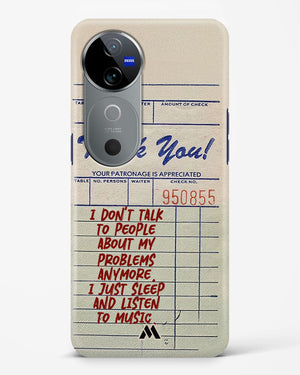 ZEISS
TABLE
WAITER
AMOUNT OF CHECK
You!
YOUR PATRONAGE IS APPRECIATED
TABLE NO. PERSONS WAITER CHECK NO.
950855
I DON'T TALK
TO PEOPLE
ABOUT MY
PROBLEMS
ANYMORE.
I JUST SLEEP
AND LISTEN
TO MUSIC.